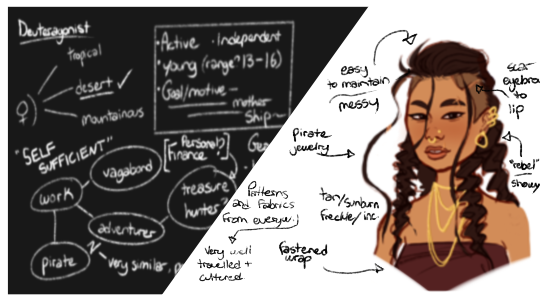 Deuteragonist
tropical
desert ✓
mountainous
• Active • Independent
• young (range 13-16)
• Goal/motive -
mother
ship
"SELF
SUFFICIENT"
[Personal
Finance
vagabond
work
treasure
hunter
adventurer
pirate
very similar,
easy
to maintain
messy
scar
eyebrow
to
lip
pirate
jewelry
"rebel"
showy
Patterns
and Fabrics
From
tan/sunburn
freckle/inc.
very well
travelled +
cultured
fastened
wrap